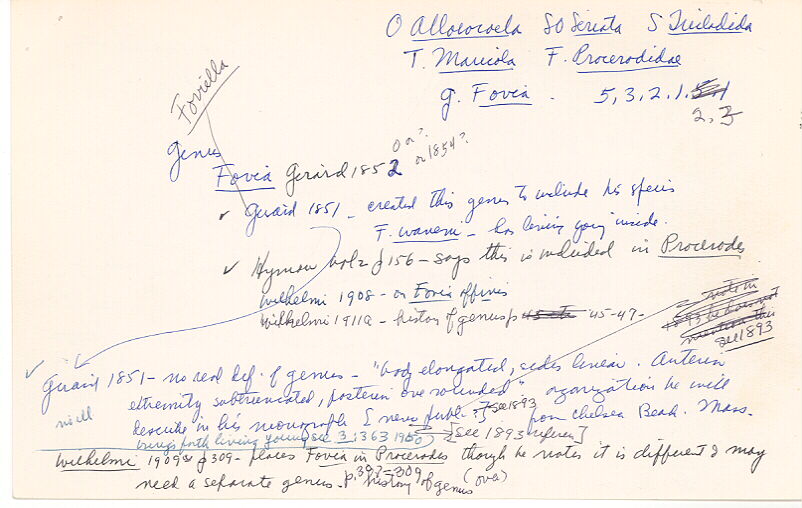 O Allococoela SO Seriata S Tricladida
T. Maricola F. Procerodidae
g. Fovia. 5, 3, 2, 1,
2, 3
Foviella
Genus
Fovia Girard 1852 0 or? or 1854?
✓ Girard 1851 - created this genus to include his species
F. warreni - has living young inside.
✓ Hyman vol 2 p 156 - says this is included in Procerodes
Wilhelmi 1908 - on Fovia affinis
Wilhelmi 1911a - history of genus p 45-47-
see 1893
✓ Girard 1851 - no real def. of genus - "body elongated, sides linear. Anterior
extremity subtruncated, posterior one rounded" organization he will
describe in his monograph [never publ.] see 1893 from Chelsea Beach. Mass.
no ill
brings forth living young, see 3:363 1950) [see 1893 reference]
Wilhelmi 1909 p 309 - places Fovia in Procerodes though he notes it is different & may
need a separate genus. p. 307-309 history of genus (over)